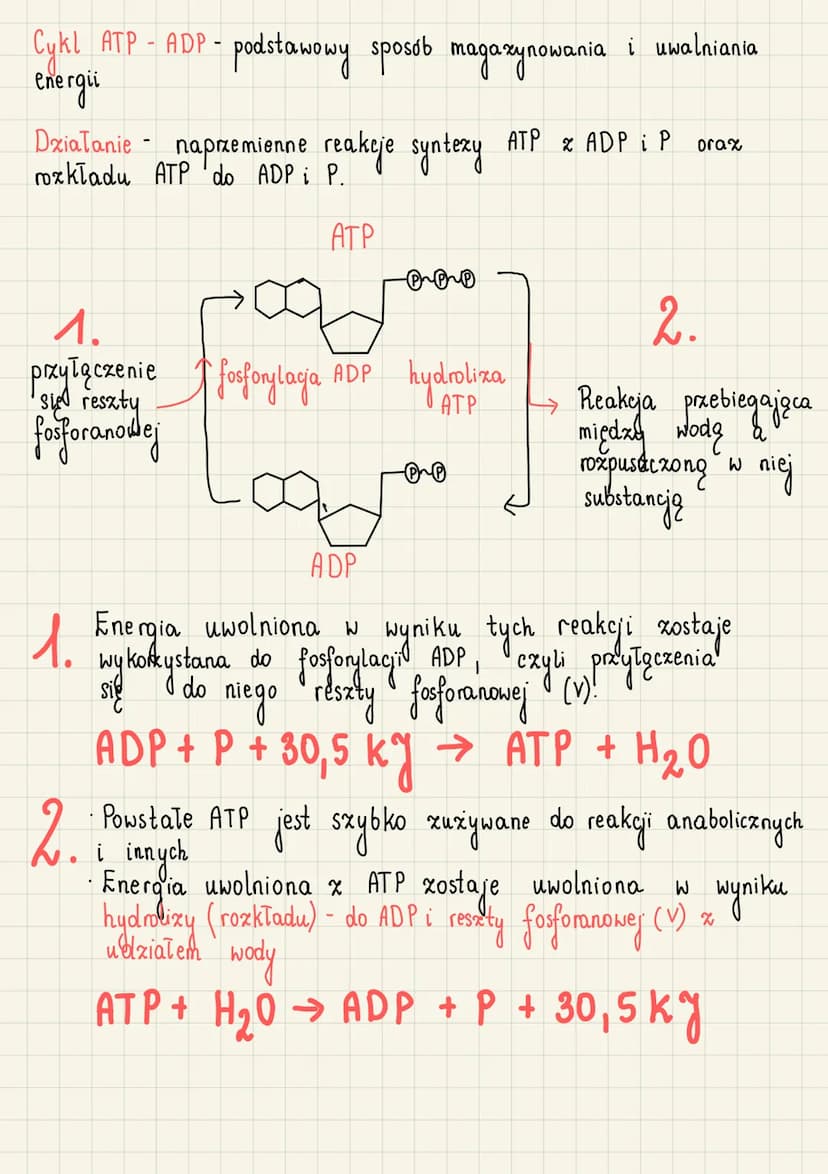 Cykl ATP - ADP - podstawowy sposób magazynowania i uwalniania
energii
Działanie - naprzemienne reakcje syntezy ATP z ADP i P oraz
rozkładu ATP do ADP i P.
ATP
P~P~P
1.
przyłączenie
się reszty
fosforanowej
fosforylacja ADP
hydroliza
ATP
2.
Reakcja przebiegająca
między wodą a
rozpuszczoną w niej
substancją
P~P
ADP
1. Energia uwolniona w wyniku tych reakcji zostaje
wykorzystana do fosforylacji ADP, czyli przyłączenia
się do niego reszty fosforanowej (V).
ADP + P + 30,5 kJ → ATP + H₂O
2. · Powstałe ATP jest szybko zużywane do reakcji anabolicznych
i innych
· Energia uwolniona z ATP zostaje uwolniona w wyniku
hydrolizy (rozkładu) - do ADP i reszty fosforanowej (V) z
udziałem wody
ATP + H₂O → ADP + P + 30,5 kJ